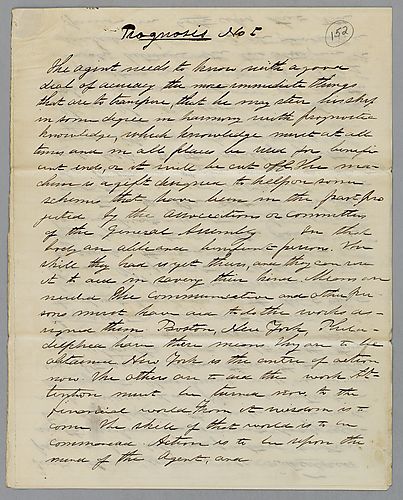 Prognosis No 5
152
The agent needs to know with a good
deal of accuracy the more immediate things
that are to transpire, that he may steer his ship
in some degree in harmony with prognostic
knowledge, which knowledge must at all
times and in all places be used for benefic
ent ends, or it will be cut off. The ma
chine is a gift designed to help on some
schemes that have been in the past pro
jected by the associations or committees
of the General Assembly In that
body are able and benificent persons. The
skill they had is yet theirs, and they can use
it to aid in saving their kind. Means are
needed. The Communicative and other per
sons must have aid to do the works as-
signed them. Boston, New York, Phila-
delphia have there means they are to be
obtained. New York is the centre of action
now. The others are to aid the work At-
tention must be turned now, to the
financial world, from it wisdom is to
come. The skill of that world is to be
commonead. Action is to be upon the
mind of the Agent, and